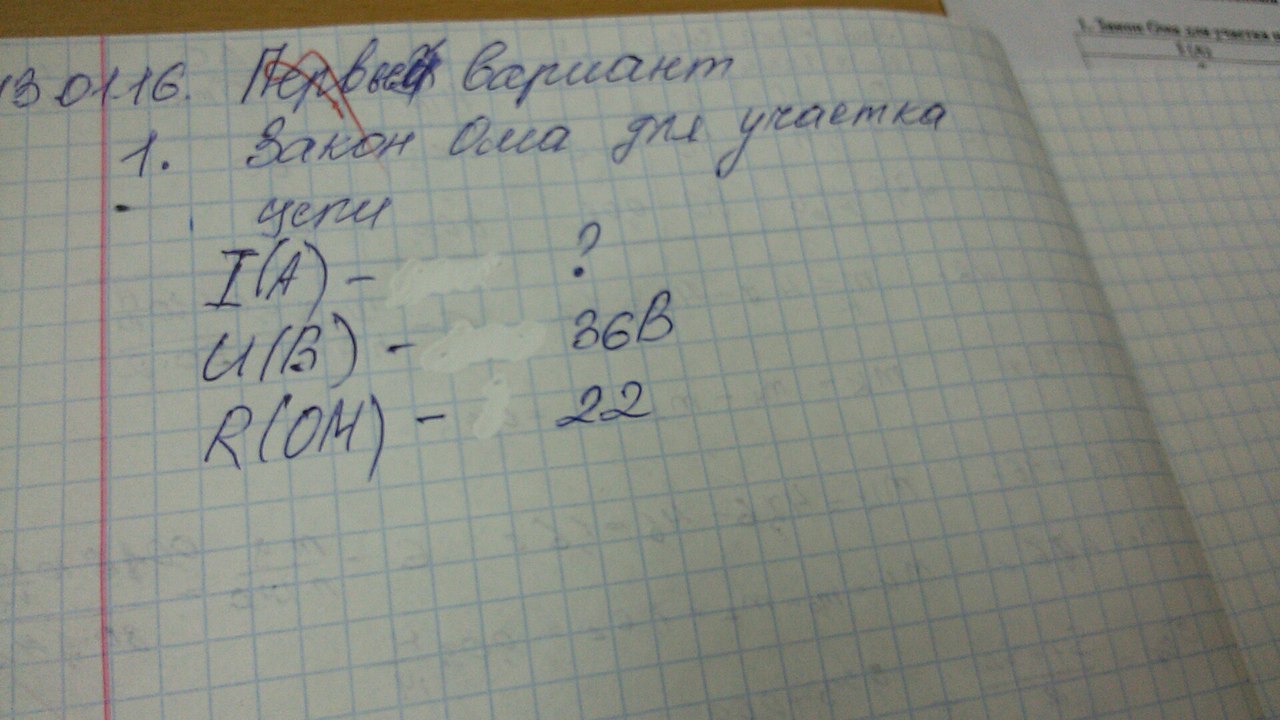 13.01.16. Первый вариант
1. Закон Ома для участка
цепи
I(А) - ?
U(В) - 36В
R(ОМ) - 22
1. Закон Ома для участка
I (A)